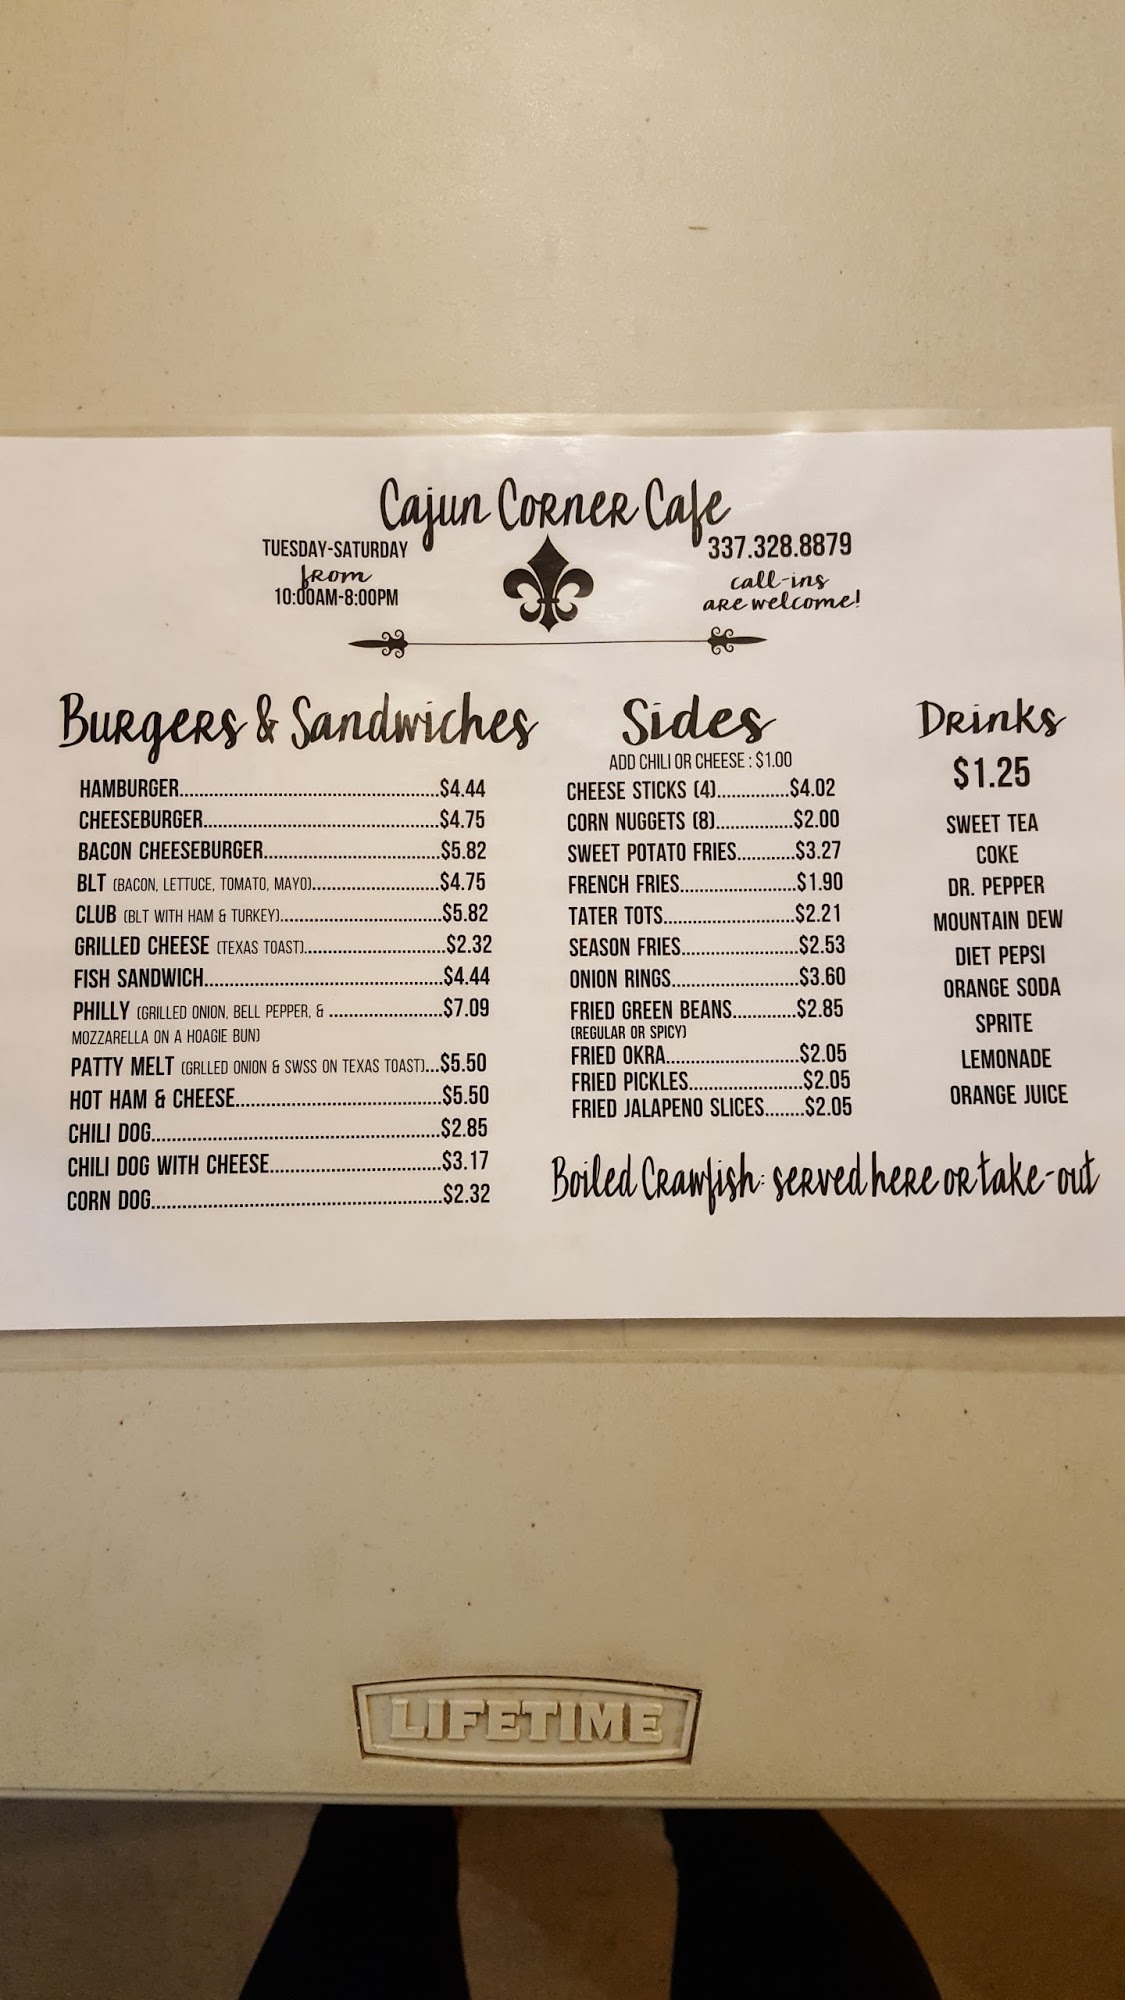 Cajun Corner Cafe
TUESDAY-SATURDAY
from
10:00AM-8:00PM
337.328.8879
call-ins
are welcome!
Burgers & Sandwiches
HAMBURGER..........$4.44
CHEESEBURGER..........$4.75
BACON CHEESEBURGER..........$5.82
BLT (BACON, LETTUCE, TOMATO, MAYO)..........$4.75
CLUB (BLT WITH HAM & TURKEY)..........$5.82
GRILLED CHEESE (TEXAS TOAST)..........$2.32
FISH SANDWICH..........$4.44
PHILLY (GRILLED ONION, BELL PEPPER, & ..........$7.09
MOZZARELLA ON A HOAGIE BUN)
PATTY MELT (GRLLED ONION & SWSS ON TEXAS TOAST)...$5.50
HOT HAM & CHEESE..........$5.50
CHILI DOG..........$2.85
CHILI DOG WITH CHEESE..........$3.17
CORN DOG..........$2.32
Sides
ADD CHILI OR CHEESE : $1.00
CHEESE STICKS (4)..........$4.02
CORN NUGGETS (8)..........$2.00
SWEET POTATO FRIES..........$3.27
FRENCH FRIES..........$1.90
TATER TOTS..........$2.21
SEASON FRIES..........$2.53
ONION RINGS..........$3.60
FRIED GREEN BEANS..........$2.85
(REGULAR OR SPICY)
FRIED OKRA..........$2.05
FRIED PICKLES..........$2.05
FRIED JALAPENO SLICES........$2.05
Drinks
$1.25
SWEET TEA
COKE
DR. PEPPER
MOUNTAIN DEW
DIET PEPSI
ORANGE SODA
SPRITE
LEMONADE
ORANGE JUICE
Boiled Crawfish: served here or take-out
LIFETIME